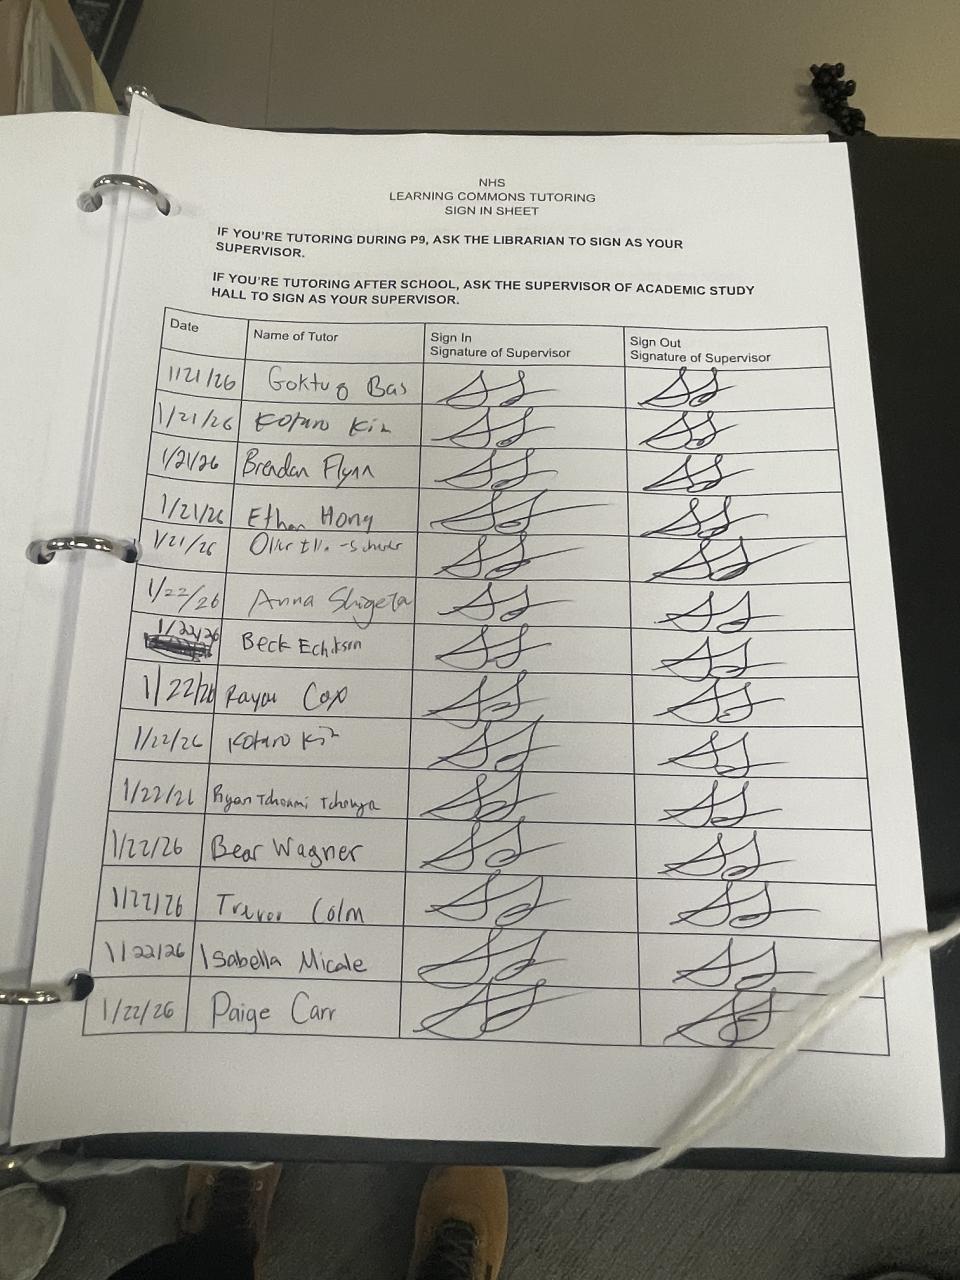 NHS
LEARNING COMMONS TUTORING
SIGN IN SHEET
IF YOU'RE TUTORING DURING P9, ASK THE LIBRARIAN TO SIGN AS YOUR
SUPERVISOR.
IF YOU'RE TUTORING AFTER SCHOOL, ASK THE SUPERVISOR OF ACADEMIC STUDY
HALL TO SIGN AS YOUR SUPERVISOR.
Date Name of Tutor Sign In Signature of Supervisor Sign Out Signature of Supervisor
1/21/26 Goktug Bas
1/21/26 Kotaro Kim
1/21/26 Brendan Flynn
1/21/26 Ethan Hong
1/21/26
1/22/26 Anna Shigeta
1/22/26 Beck Echikson
1/22/26 Cox
1/22/26 Kotaro Kim
1/22/26 Ryan Tchoumi
1/22/26 Bear Wagner
1/22/26 Trevor Colm
1/22/26 Isabella Micale
1/22/26 Paige Carr